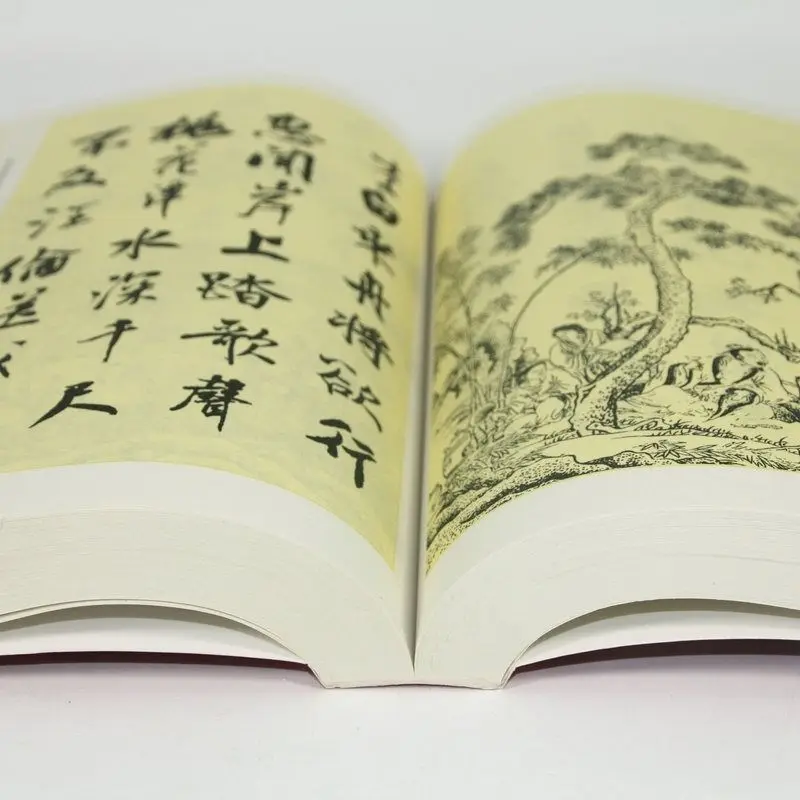 李白乘舟將欲行
忽聞岸上踏歌聲
桃花潭水深千尺
不及汪倫送我